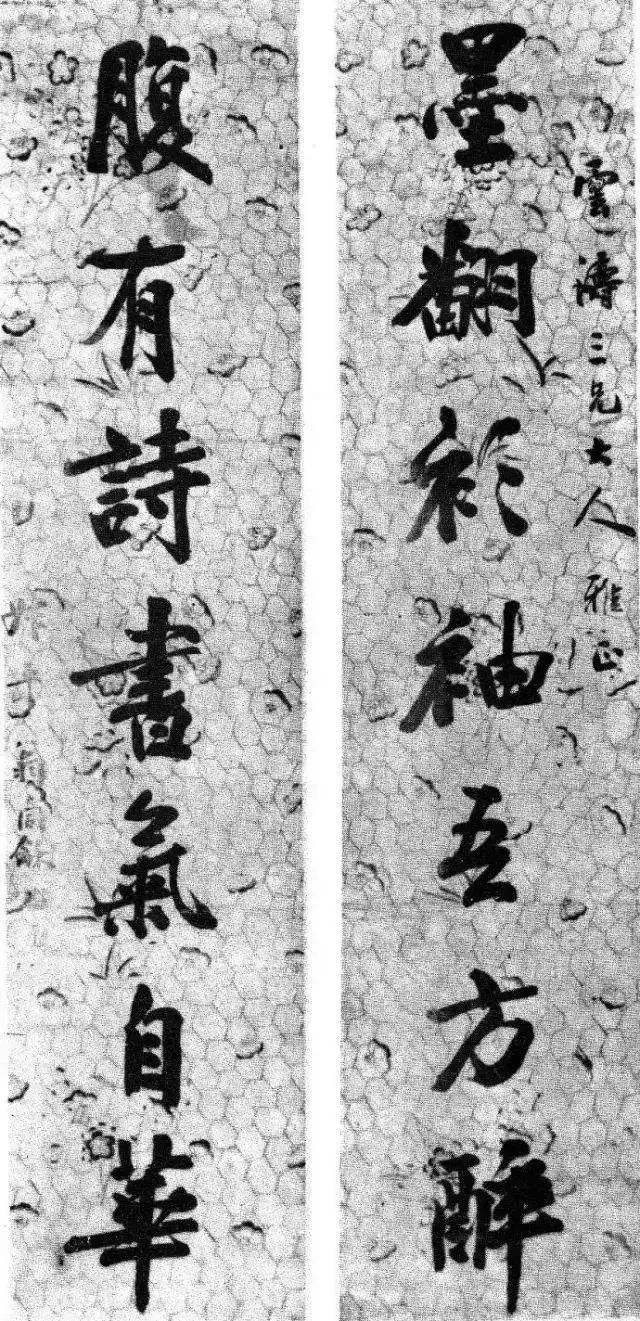 雲濤三兄大人雅正
墨翻衫袖吾方醉
腹有詩書氣自華
翁同龢